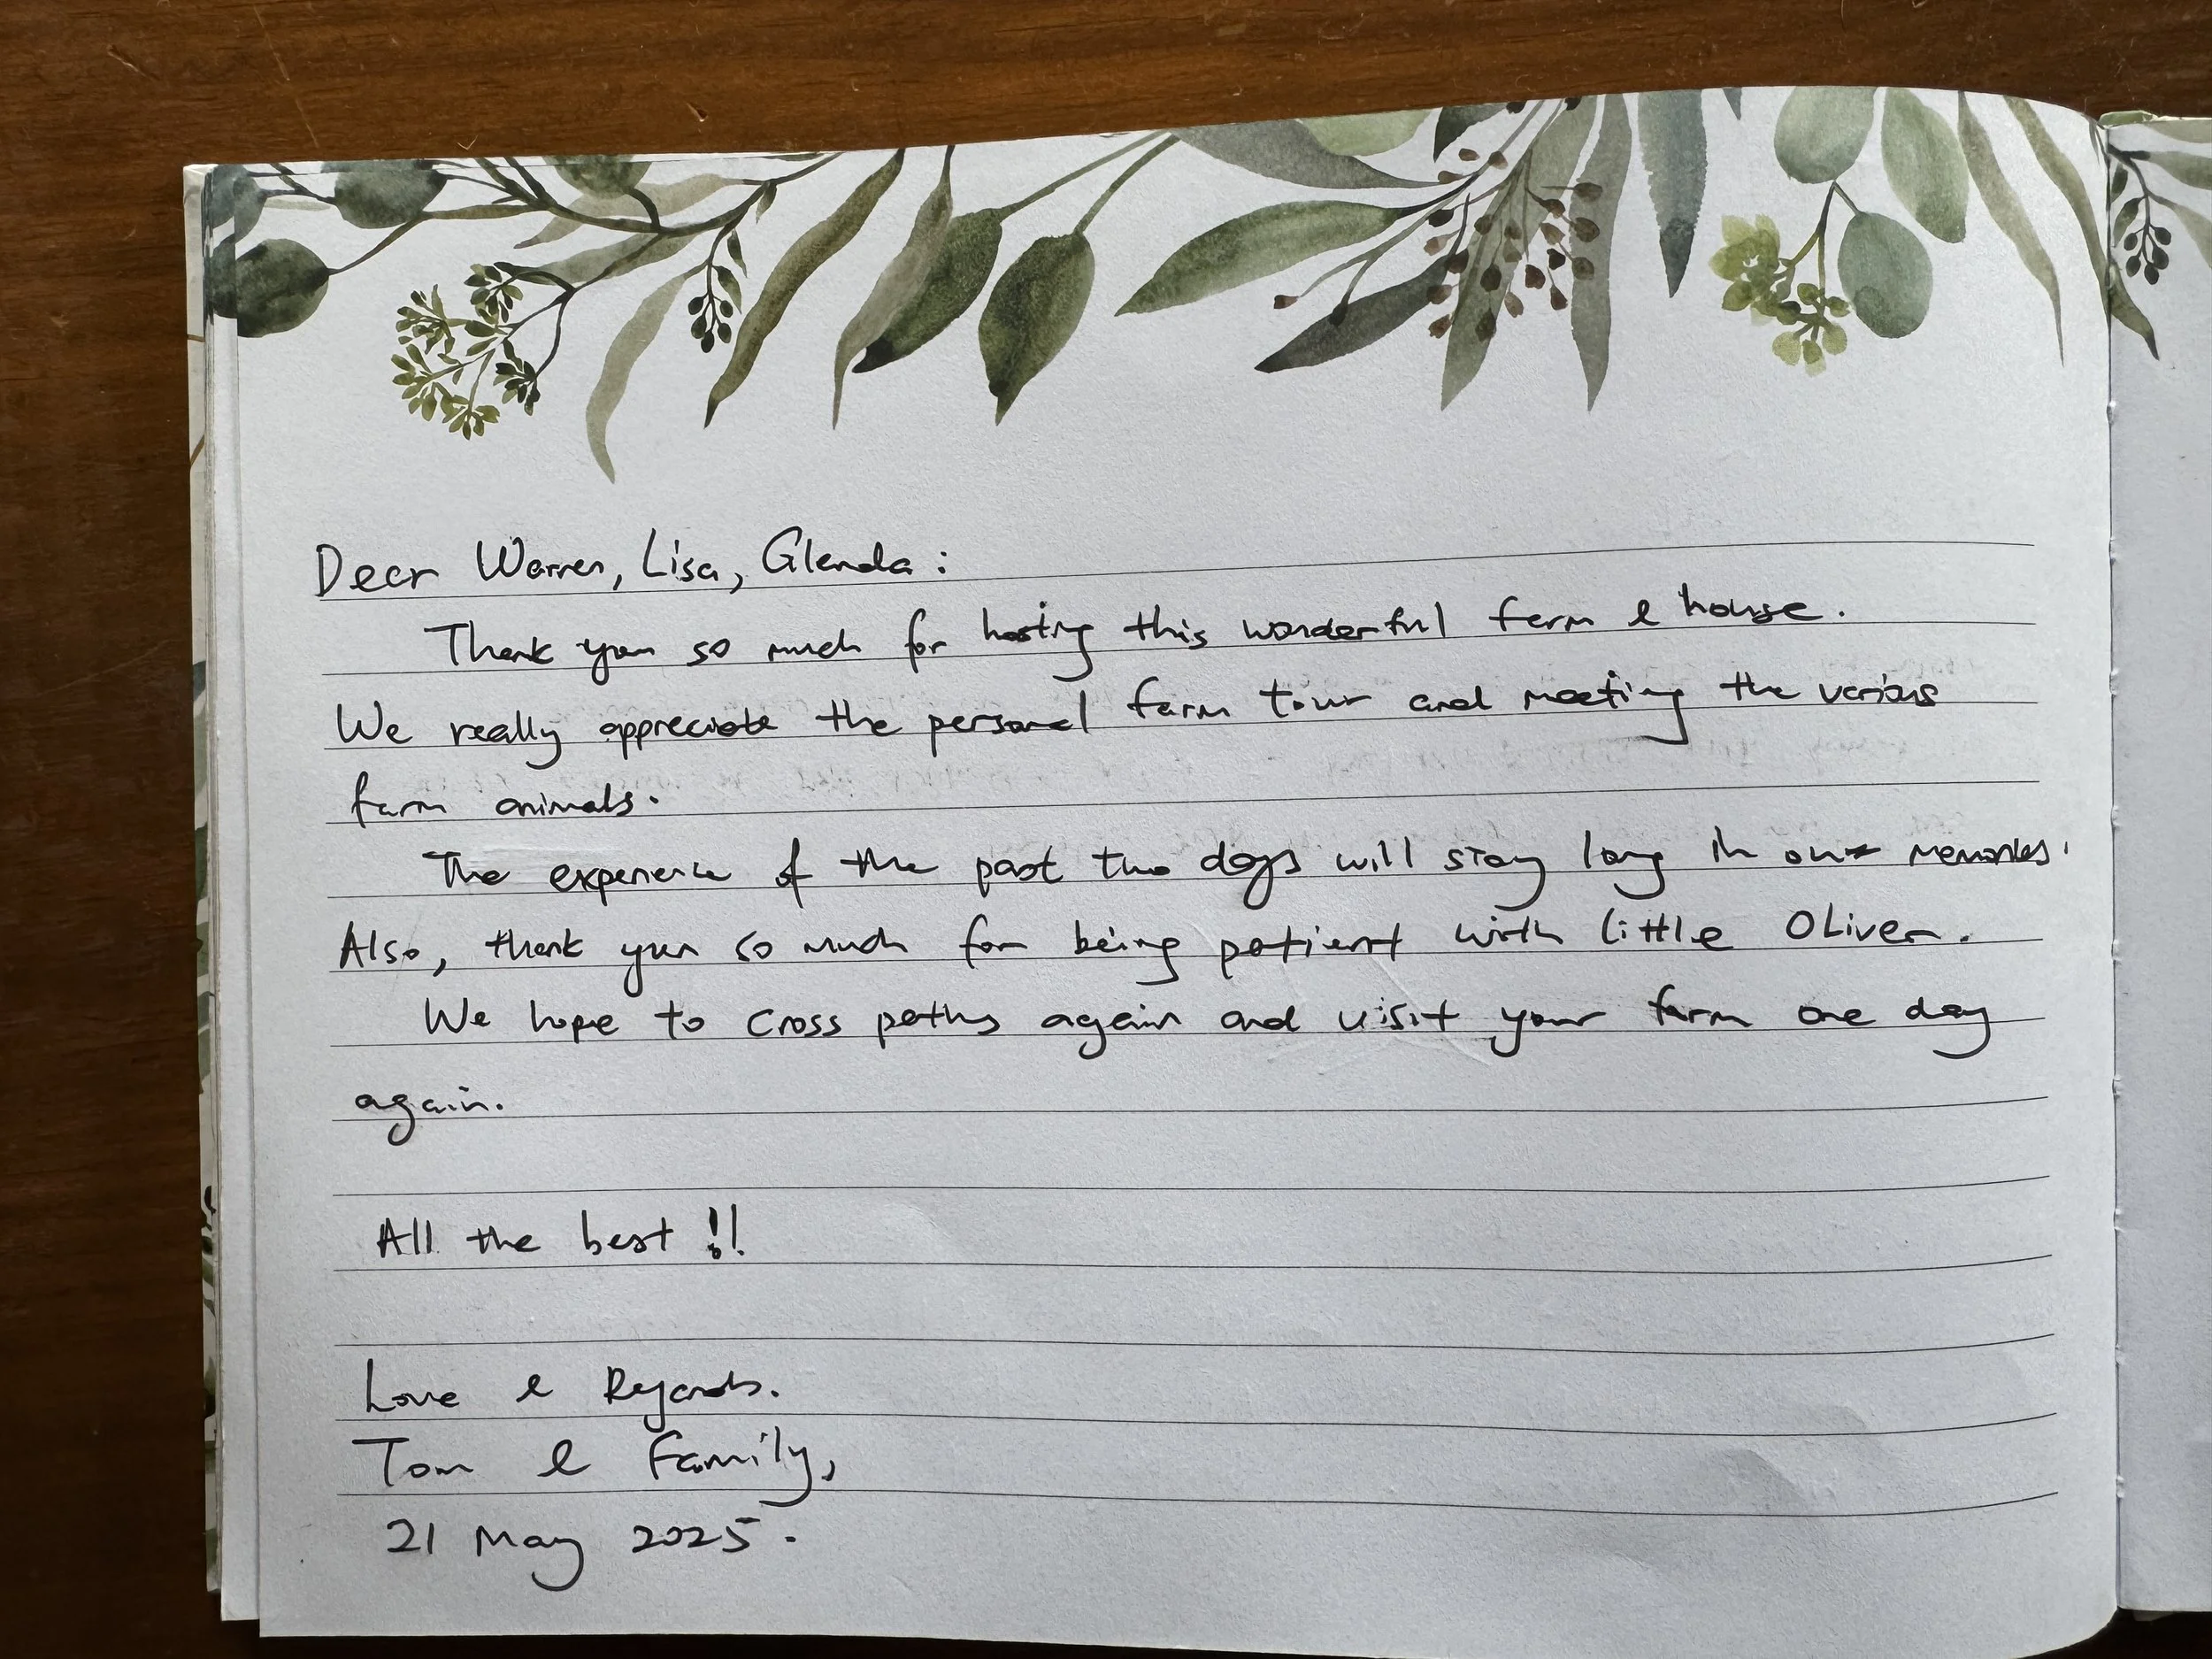 Dear Warren, Lisa, Glenda:
Thank you so much for hosting this wonderful farm & house.
We really appreciate the personal farm tour and meeting the various
farm animals.
The experience of the past two days will stay long in our memories.
Also, thank you so much for being patient with little Oliver.
We hope to cross paths again and visit your farm one day
again.
All the best !!
Love & Regards.
Tom & Family,
21 May 2025.